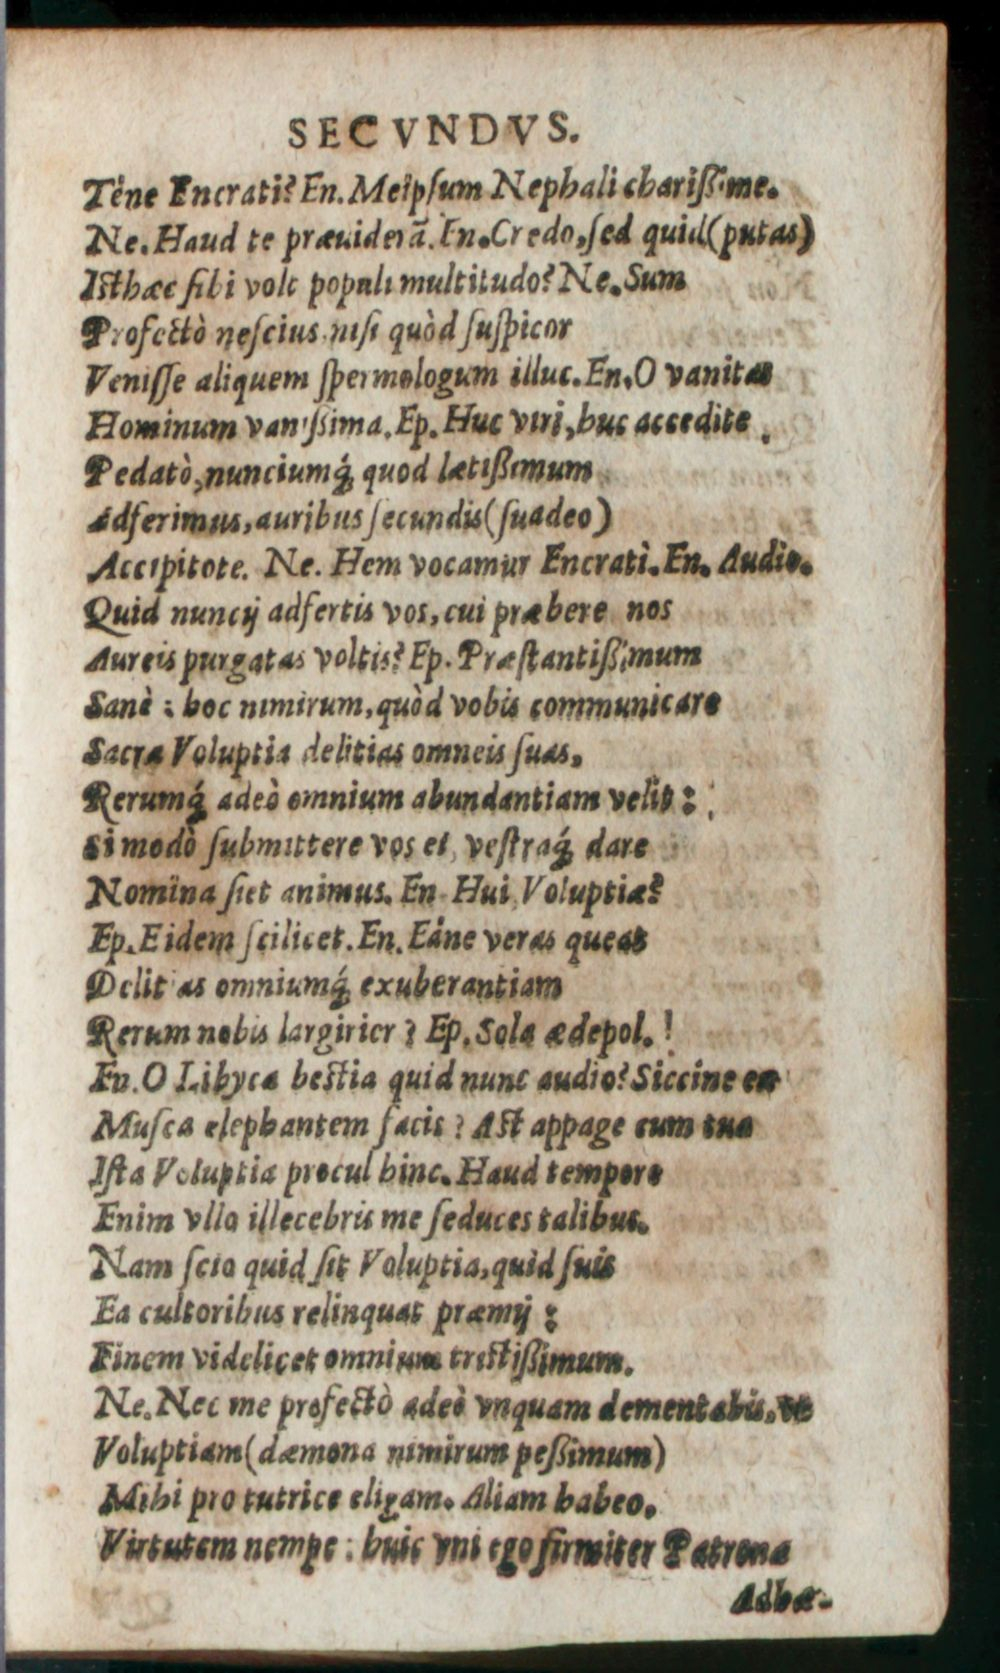 SECVNDVS.
Téne Encrati? En. Meipsum Nephali charißime.
Ne. Haud te præuiderā. En. Credo, sed quid (putas)
Isthæc sibi volt populi multitudo? Ne. Sum
Profectò nescius nisi quòd suspicor
Venisse aliquem spermologum illuc. En. O vanitas
Hominum vanißima. Ep. Huc viri, huc accedite,
Pedatò, nunciumq́; quod lætißimum
Adferimus, auribus secundis (suadeo)
Accipitote. Ne. Hem vocamur Encrati. En. Audio.
Quid nuncij adfertis vos, cui præbere nos
Aureis purgatas voltis? Ep. Præstantißimum
Sanè: hoc nimirum, quòd vobis communicare
Sacra Voluptia delitias omneis suas,
Rerumq́; adeò omnium abundantiam velit:
Si modò submittere vos ei, vestraq́; dare
Nomina siet animus. En. Hui, Voluptiæ?
Ep. Eidem scilicet. En. Eáne veras queat
Delitias omniumq́; exuberantiam
Rerum nobis largirier? Ep. Sola ædepol. !
En. O Libyca bestia quid nunc audio? Siccine ex
Musca elephantem facis? Ast appage cum tua
Ista Voluptia procul hinc. Haud tempore
Enim vllo illecebris me seduces talibus.
Nam scio quid sit Voluptia, quid suis
Ea cultoribus relinquat præmij:
Finem videlicet omnium tristißimum.
Ne. Nec me profectò adeò vnquam dementabis, vt
Voluptiam (dæmona nimirum peßimum)
Mihi pro tutrice eligam. Aliam habeo.
Virtutem nempe: huic vni ego firmiter Patronæ
Adhæ-